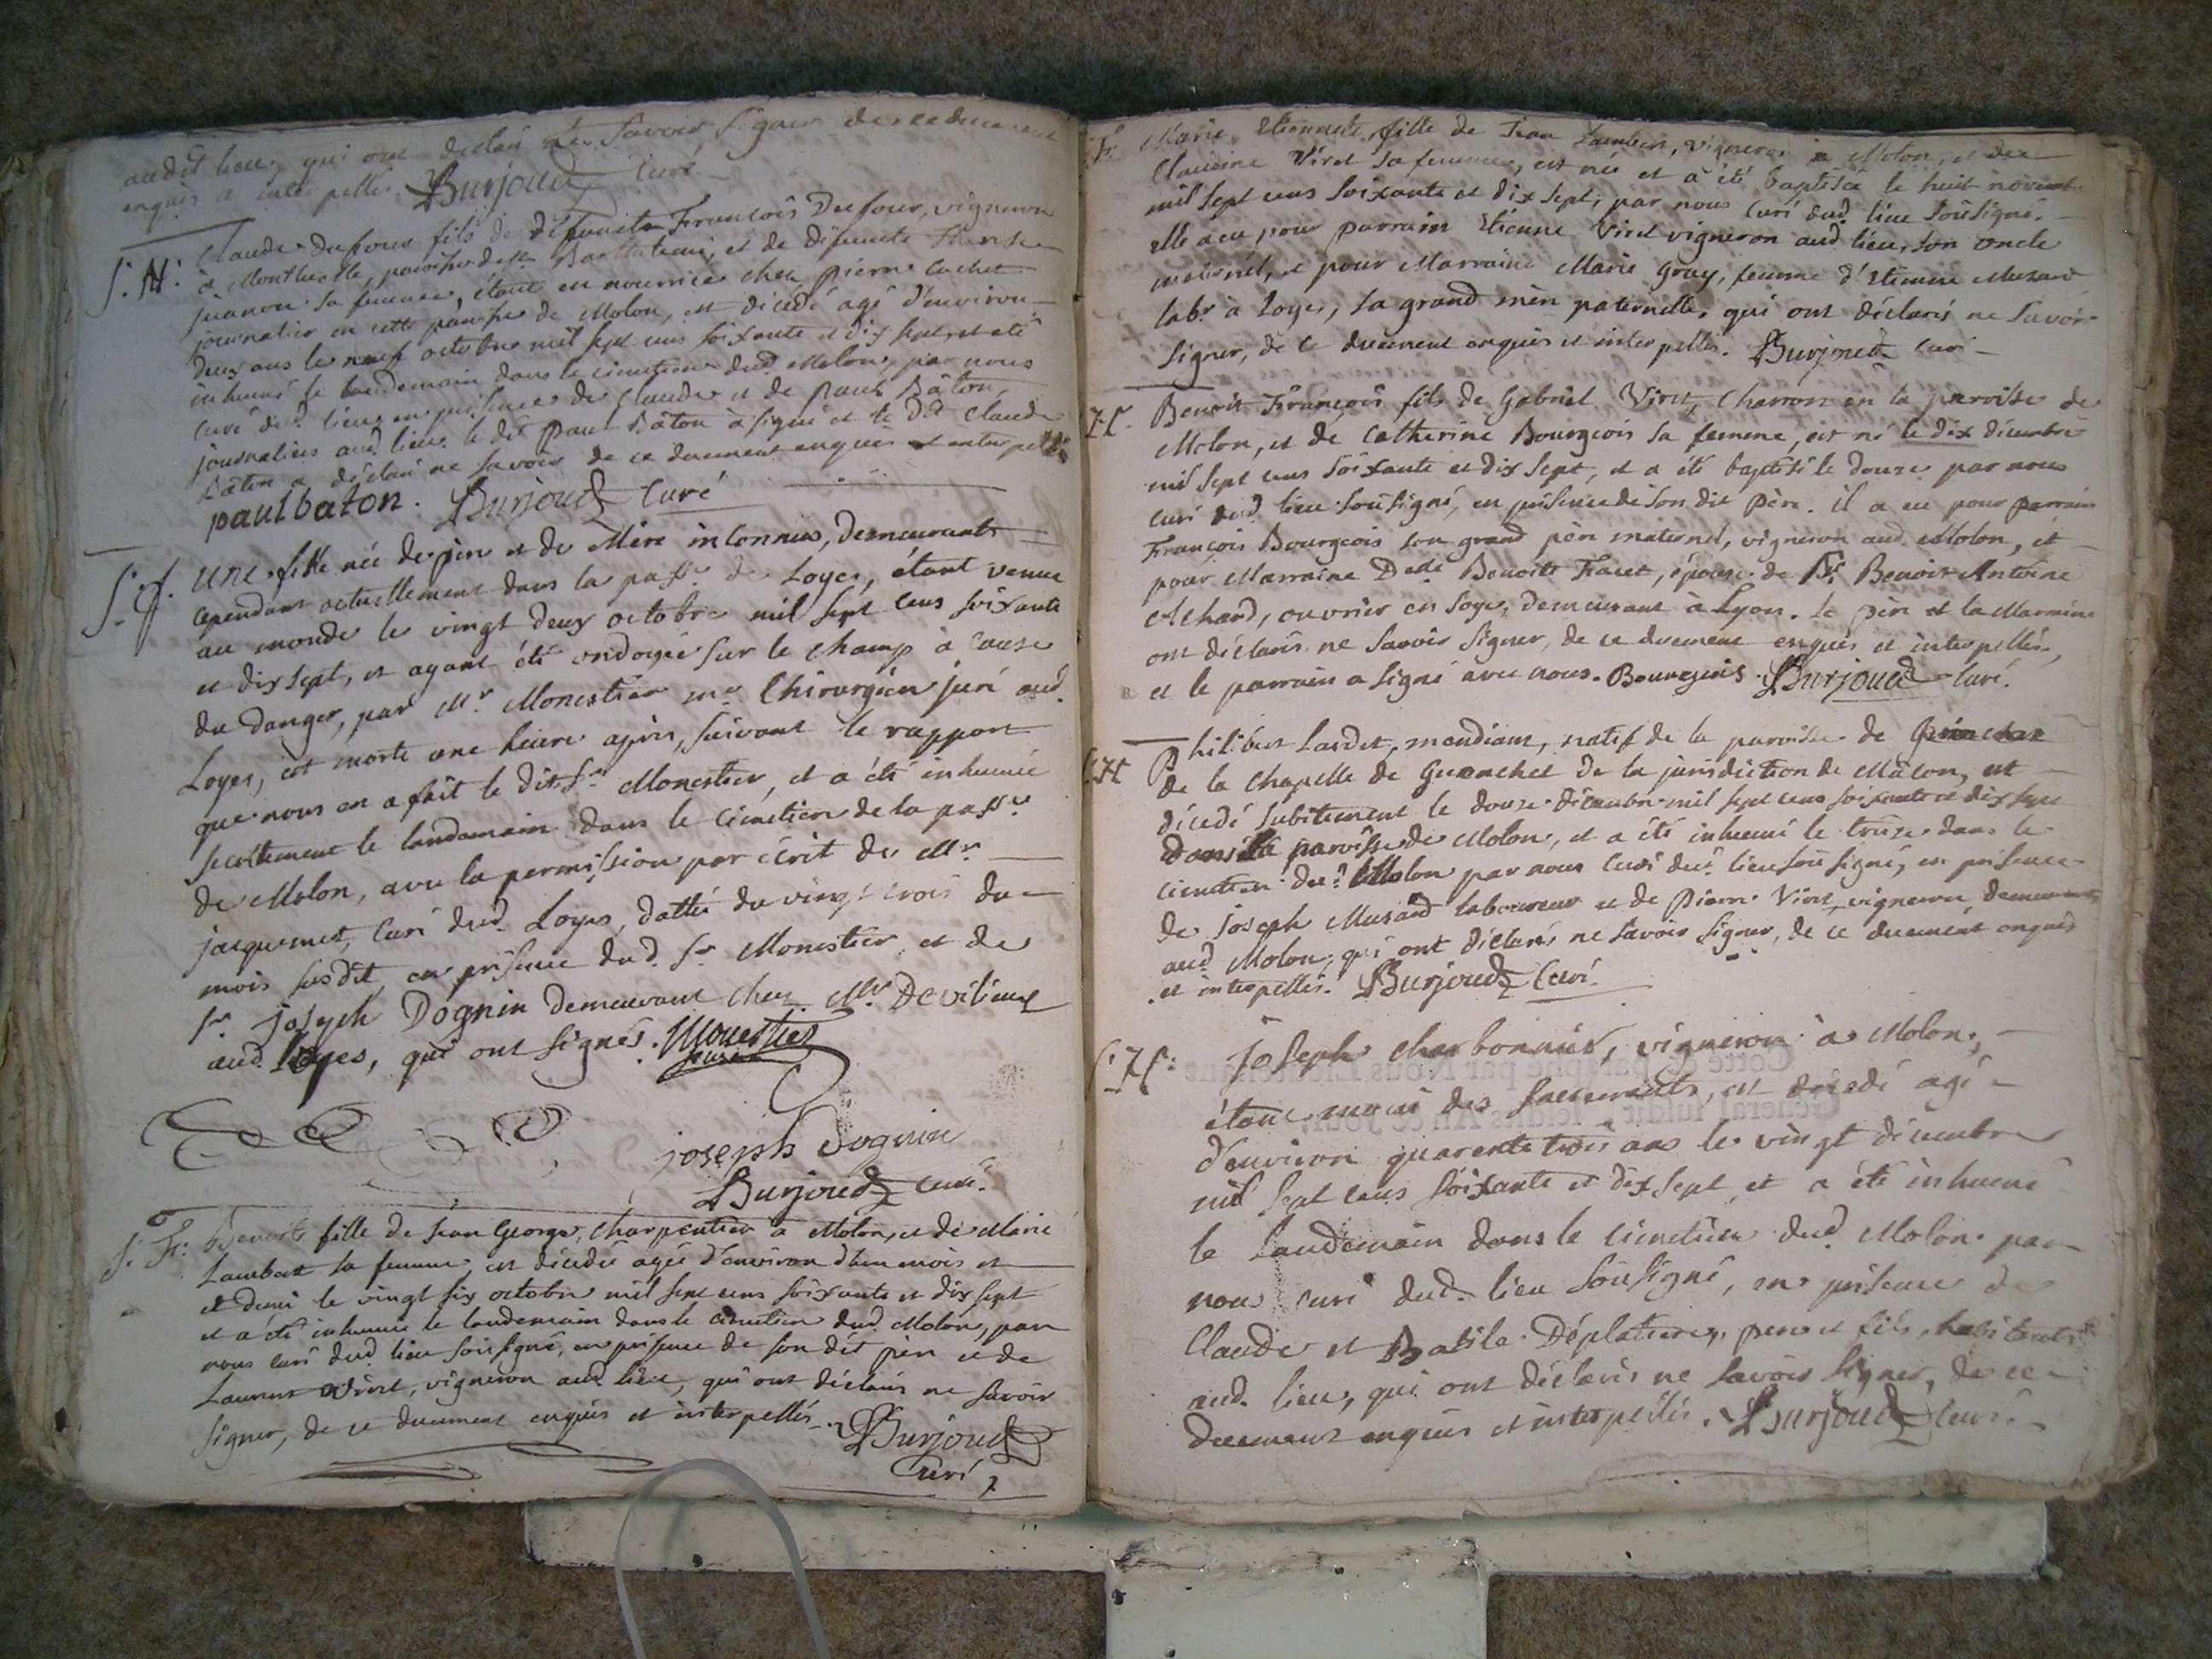 audit lieu, qui ont déclaré ne savoir signer de ce duement
enquis et interpellés. Burjoud curé
S. N. Claude Dufour fils de défunt François Dufour, vigneron
à Monthuelle, paroisse de St. Barthelemi, et de défunte
sa femme, étant en nourrice chez pierre cachet
journalier en cette paroisse de Molon, est décédé agé d'environ
deux ans le neuf octobre mil sept cens soixante et dix sept, et a été
inhumé le landemain dans le cimetiere dud. Molon, par nous
curé dud. lieu en présence de Claude et de Paul Bâton,
journaliers aud. lieu. le dit Paul Bâton a signé et le dit Claude
Bâton a déclaré ne savoir de ce duement enquis et interpellé
paul baton. Burjoud curé
S. f. une fille née de père et de Mère inconnus, demeurants
cependant actuellement dans la passe. de Loyes, étant venue
au monde le vingt deux octobre mil sept cens soixante
et dix sept, et ayant été ondoyée sur le champ à cause
du danger, par Mr. Monestier me. Chirurgien juré aud.
Loyes, est morte une heure après, suivant le rapport
que nous en a fait le dit Sr. Monestier, et a été inhumée
secrettement le landemain dans le cimetiere de la passe.
de Molon, avec la permission par écrit de Mr.
jacquemet, curé dud. Loyes, datté du vingt trois du
mois susdit, en présence dud. Sr. Monestier, et de
Sr. joseph Dognin demeurant chez Mr. Devilieux
aud. Loyes, qui ont signés. Monestier
joseph dognin
Burjoud curé
S. F. Benoite fille de Jean George, charpentier à Molon, et de Marie
Lambert sa femme, est décédée agée d'environ d'un mois et
et demi le vingt six octobre mil sept cens soixante et dix sept
et a été inhumée le landemain dans le cimetiere dud. Molon, par
nous curé dud. lieu soûsigné, en présence de son dit père et de
Laurent Viret, vigneron aud. lieu, qui ont déclarés ne savoir
signer, de ce duement enquis et interpellés. Burjoud
Curé
Marie Etiennete, fille de Jean Lambert, vigneron à Molon, et de
Claudine Viret sa femme, est née et a été baptisée le huit novemb.
mil sept cens soixante et dix sept, par nous curé dud. lieu soûsigné.
elle a eu pour parrain Etienne Viret vigneron aud. lieu, son oncle
maternel, et pour Marraine Marie Gray, femme d'Etienne Musard
labr. à Loyes, sa grand mère paternelle, qui ont déclarés ne savoir
signer, de ce duement enquis et interpellés. Burjoud curé
Benoit François fils de Gabriel Viret, charron en la paroisse de
Molon, et de Catherine Bourgeois sa femme, est né le dix décembre
mil sept cens soixante et dix sept, et a été baptisé le douze par nous
curé dud. lieu soûsigné, en présence de son dit père. il a eu pour parrain
François Bourgeois son grand père maternel, vigneron aud. Molon, et
pour Marraine Benoite épouse de Benoit Antoine
Achard, ouvrier en soye, demeurant à Lyon. le père et la Marraine
ont déclarés ne savoir signer, de ce duement enquis et interpellés,
et le parrain a signé avec nous. Bourgeois. Burjoud curé.
Philibert Lardet, mendiant, natif de la paroisse de
de la Chapelle de Guinchet de la jurisdiction de Mâcon, est
décédé subitement le douze décembre mil sept cens soixante et dix sept
dans la paroisse de Molon, et a été inhumé le treize dans le
cimetiere dud. Molon par nous curé dud. lieu soûsigné, en présence
de Joseph Musard laboureur et de Pierre Viret, vigneron, demeurants
aud. Molon, qui ont déclarés ne savoir signer, de ce duement enquis
et interpellés. Burjoud Curé.
joseph charbonnier, vigneron à Molon,
étant muni des sacrements, est décédé agé
d'environ quarente trois ans le vingt décembre
mil sept cens soixante et dix sept, et a été inhumé
le landemain dans le cimetiere dud. Molon par
nous curé dud. lieu soûsigné, en présence de
Claude et Basile Déplatiere, pere et fils, habitants
aud. lieu, qui ont déclarés ne savoir signer, de ce
duement enquis et interpellés. Burjoud curé